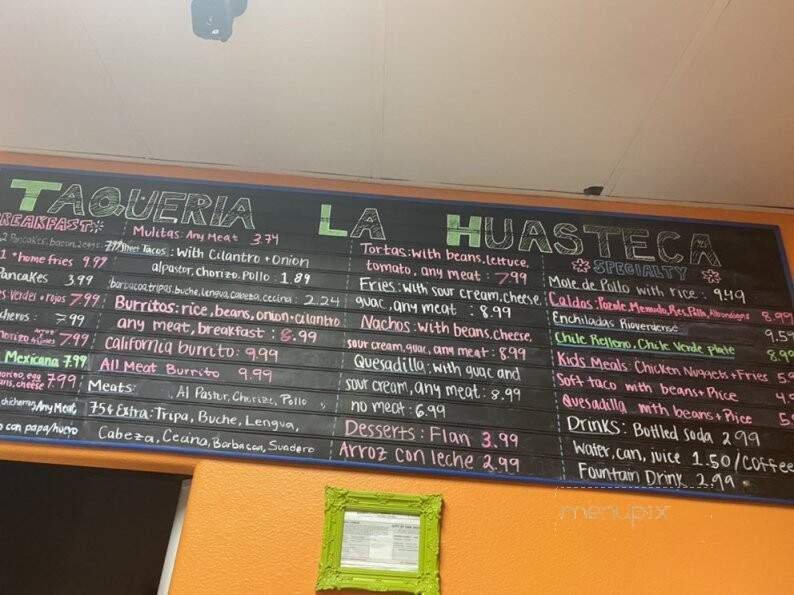 TAQUERIA LA HUASTECA
BREAKFAST:
2 Pancakes, bacon, 2 eggs 7.99
1 + home fries 9.99
Pancakes 3.99
verdes + rojos 7.99
7.99
7.99
Mexicana 7.99
egg
beans, cheese 7.99
chicharron, Any Meat,
con papa/huevo
Mulitas: Any Meat 3.74
Street Tacos: With Cilantro + Onion
al pastor, chorizo, Pollo : 1.89
barbacoa, tripas, buche, lengua, cabeza, cecina : 2.24
Burritos: rice, beans, onion + cilantro
any meat, breakfast : 8.99
California burrito: 9.99
All Meat Burrito 9.99
Meats: Al Pastor, Chorizo, Pollo
75¢ Extra: Tripa, Buche, Lengua,
Cabeza, Ceana, Barbacoa, Suadero
Tortas: with beans, lettuce,
tomato, any meat : 7.99
Fries: with sour cream, cheese
guac, any meat : 8.99
Nachos: with beans, cheese,
sour cream, guac, any meat : 8.99
Quesadilla: with guac and
sour cream, any meat : 8.99
no meat : 6.99
Desserts: Flan 3.99
Arroz con leche 2.99
SPECIALTY
Mole de Pollo with rice : 9.49
Caldos: Pozole, Menudo, Res, Pollo, Albondigas 8.99
Enchiladas Rioverdense 9.5
Chile Relleno, Chile Verde plate 8.9
Kids Meals: Chicken Nuggets + Fries 5.
Soft taco with beans + Rice 4.
Quesadilla with beans + Rice 5.
Drinks: Bottled soda 2.99
Water, can, juice 1.50/Coffee
Fountain Drink 2.99
menupix